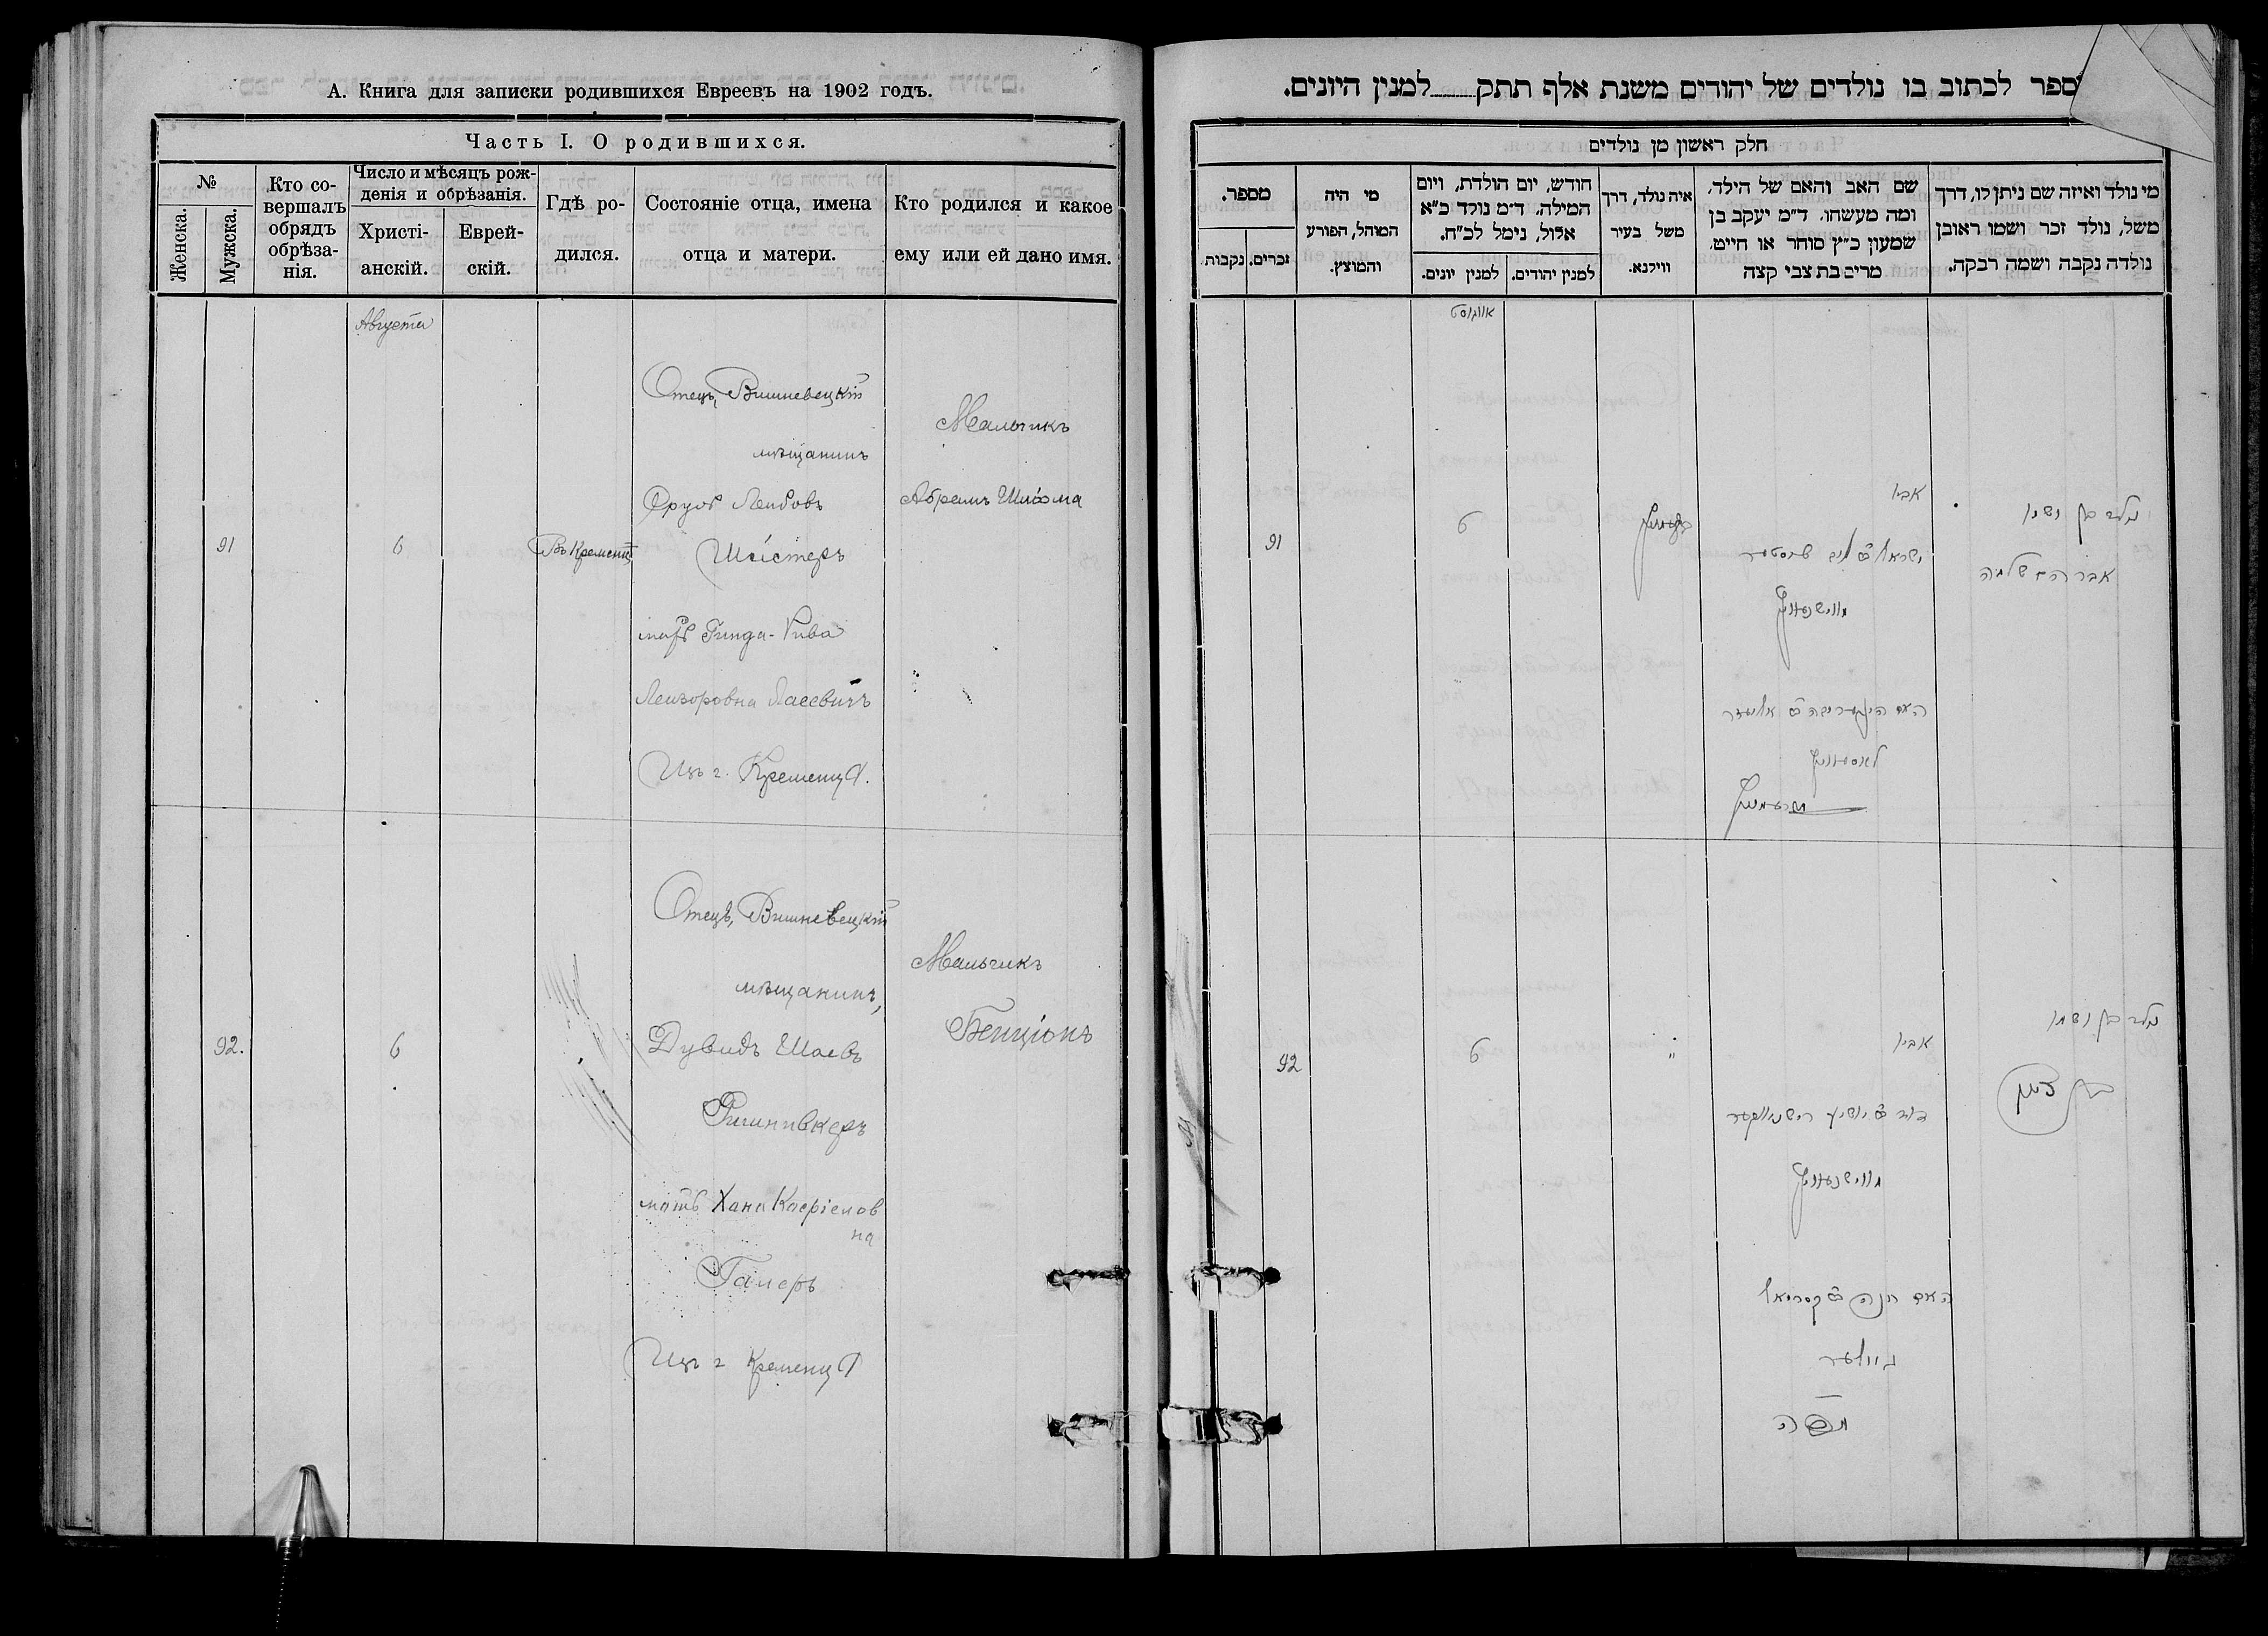 А. Книга для записки родившихся Евреевъ на 1902 годъ.
Часть I. О родившихся.
№
Женска.
Мужска.
Кто со-
вершалъ
обрядъ
обрѣза-
нія.
Число и мѣсяцъ рож-
денія и обрѣзанія.
Христі-
анскій.
Еврей-
скій.
Гдѣ ро-
дился.
Состояніе отца, имена
отца и матери.
Кто родился и какое
ему или ей дано имя.
Августа
91
6
Въ Кременцѣ
Отецъ, Вишневецкій
мѣщанинъ
Сруль Лейбовъ
Шистеръ
мать Гинда-Рива
Лейзоровна Ласевичъ
Изъ г. Кременца.
Мальчикъ
Абрамъ Шлёма
92.
6
Отецъ, Вишневецкій
мѣщанинъ,
Дувидъ Шаевъ
мать Хана Касріелов
на
Изъ г Кременца
Мальчикъ
Бенціонъ
ספר לכתוב בו נולדים של יהודים משנת אלף תתק למנין היונים.
חלק ראשון מן נולדים
מי נולד ואיזה שם ניתן לו, דרך
משל, נולד זכר ושמו ראובן
נולדה נקבה ושמה רבקה.
שם האב והאם של הילד,
ומה מעשהו. ד״מ יעקב בן
שמעון כ״ץ סוחר או חייט,
מרים בת צבי קצה
איה נולד, דרך
משל בעיר
ווילנא.
חודש, יום הולדת, ויום
המילה. ד״מ נולד כ״א
אלול, נימל לכ״ח.
למנין יהודים.
למנין יונים.
מי היה
המוהל, הפורע
והמוצץ.
מספר.
זכרים.
נקבות.
אווגוסט
נולד בן ושמו
אברהם שלמה
אביו
ישראל ב׳ לייב שוסטער
6
91
נולד בן ושמו
בן ציון
אביו
"
6
92
האם חנה ב׳ כסריאל